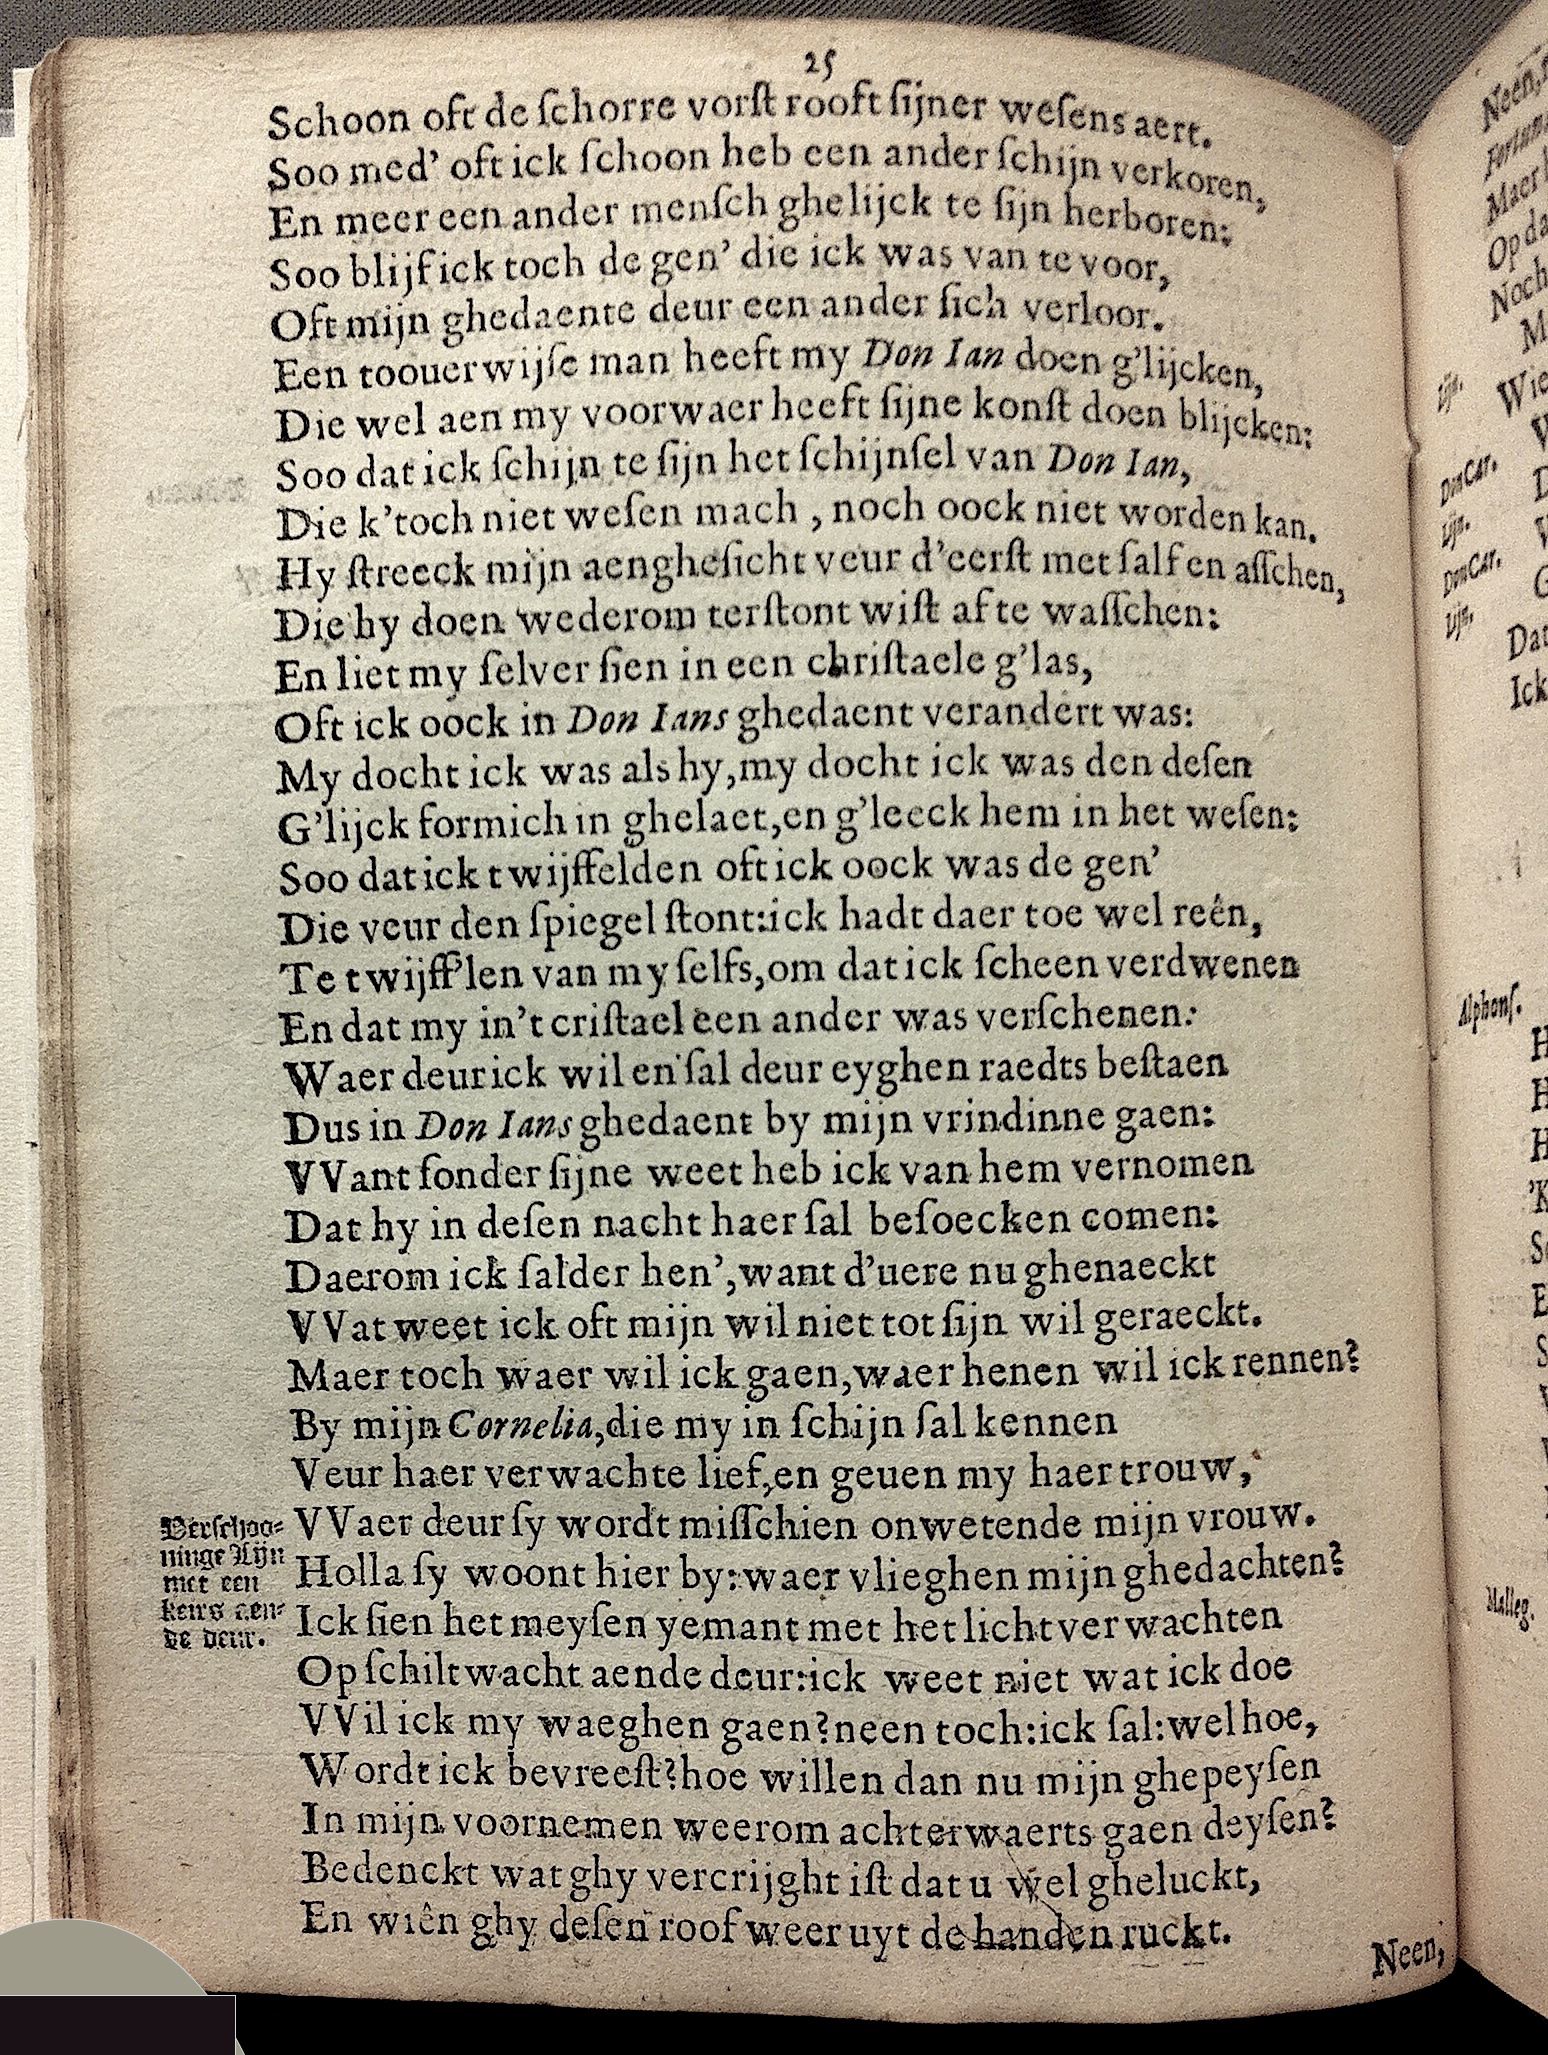 25
Schoon oft de ſchorre vorſt rooft ſijner weſens aert.
Soo med’ oft ick ſchoon heb een ander ſchijn verkoren,
En meer een ander menſch ghelijck te ſijn herboren:
Soo blijf ick toch de gen’ die ick was van te voor,
Oft mijn ghedaente deur een ander ſich verloor.
Een toouerwijſe man heeft my Don Ian doen g’lijcken,
Die wel aen my voorwaer heeft ſijne konſt doen blijcken:
Soo dat ick ſchijn te ſijn het ſchijnſel van Don Ian,
Die k’toch niet weſen mach , noch oock niet worden kan.
Hy ſtreeck mijn aengheſicht veur d’eerſt met ſalf en aſſchen,
Die hy doen wederom terſtont wiſt af te waſſchen:
En liet my ſelver ſien in een chriſtaele g’las,
Oft ick oock in Don Ians ghedaent verandert was:
My docht ick was als hy,my docht ick was den deſen
G’lijck formich in ghelaet,en g’leeck hem in het weſen:
Soo dat ick twijffelden oft ick oock was de gen’
Die veur den ſpiegel ſtont:ick hadt daer toe wel reên,
Te twijff’len van my ſelfs,om dat ick ſcheen verdwenen
En dat my in’t criſtael een ander was verſchenen:
Waer deur ick wil en ſal deur eyghen raedts beſtaen
Dus in Don Ians ghedaent by mijn vrindinne gaen:
VVant ſonder ſijne weet heb ick van hem vernomen
Dat hy in deſen nacht haer ſal beſoecken comen:
Daerom ick ſalder hen’,want d’uere nu ghenaeckt
VVat weet ick oft mijn wil niet tot ſijn wil geraeckt.
Maer toch waer wil ick gaen,waer henen wil ick rennen?
By mijn Cornelia,die my in ſchijn ſal kennen
Veur haer verwachte lief,en geuen my haer trouw,
VVaer deur ſy wordt miſſchien onwetende mijn vrouw.
Holla ſy woont hier by:waer vlieghen mijn ghedachten?
Ick ſien het meyſen yemant met het licht verwachten
Op ſchiltwacht aende deur:ick weet niet wat ick doe
VVil ick my waeghen gaen?neen toch:ick ſal:wel hoe,
Wordt ick bevreeſt?hoe willen dan nu mijn ghepeyſen
In mijn voornemen weerom achterwaerts gaen deyſen?
Bedenckt wat ghy vercrijght iſt dat u wel gheluckt,
En wiên ghy deſen roof weer uyt de handen ruckt.
Neen,
Verſchoo-
ninge Lijn
met een
keirs aen-
de deur.
Neen,
Maer
Op da
Noch
M
Lijn.
Wie
Don Car.
D
Lijn.
Don Car.
G
Lijn.
Dat
Ick
Alphonſ.
H
H
H
’K
So
E
S
Malleg.